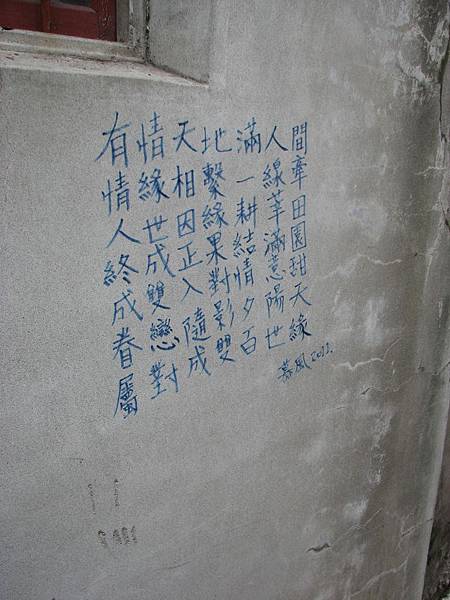 有情天地滿人間
情緣相繫一線牽
人世因緣耕莘田
終成正果結滿園
成雙入對情意甜
眷戀隨影夕陽天
屬對成雙百世緣
慕風 2012.